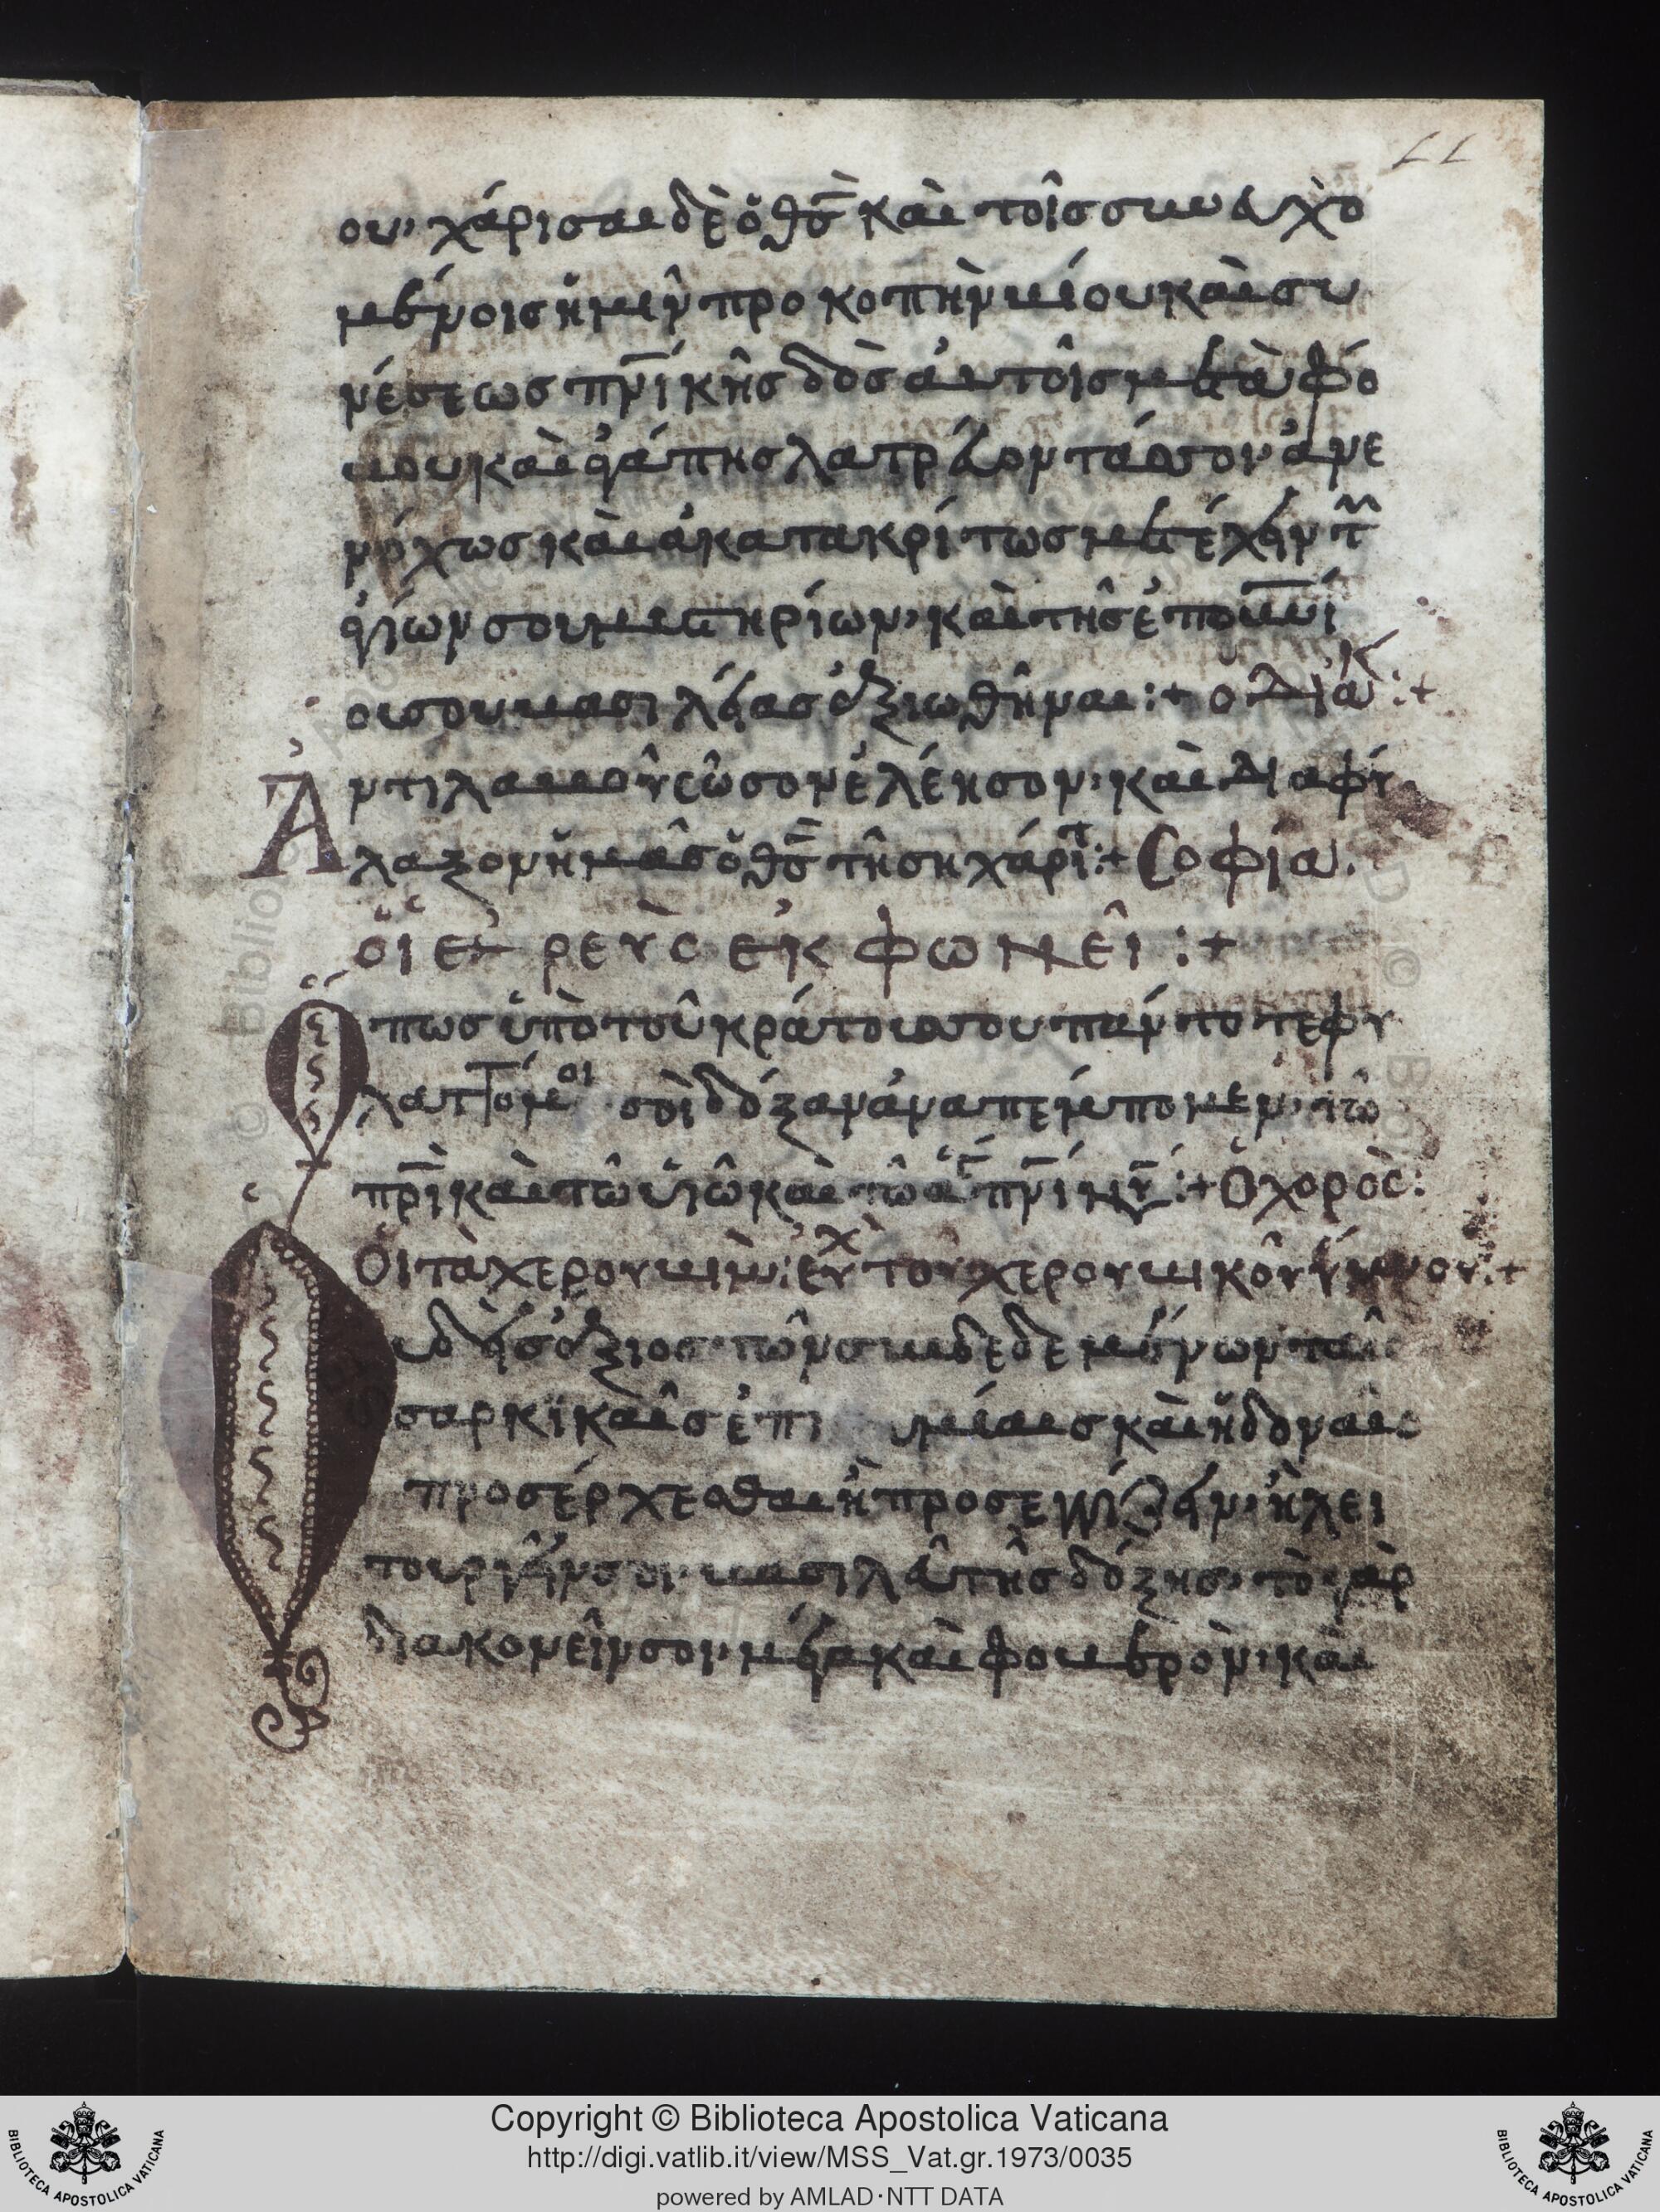 ου· χάρισαι δὲ ὁ θ̅ς̅ καὶ τοῖς συνευχο
μένοις ἡμῖν προκοπὴν βίου καὶ συ
νέσεως πν̅ικῆς δὸς αὐτοῖς μετὰ φό
βου καὶ ἀγάπης λατρεύοντάς σοι ἀνε
νόχως καὶ ἀκατακρίτως μετέχειν τῶν
ἁγίων σου μυστηρίων· καὶ τῆς ἐπουνί
ου σου βασιλείας ἀξιωθῆναι :+ ὁ Διάκ :+
Ἀντιλαβοῦ σῶσον ἐλέησον· καὶ Διαφύ
λαξον ἡμᾶς ὁ θ̅ς̅ τῇ σῇ χάριτι :+ Σοφία.
ὁ ἱερεὺς ἐκφωνεῖ :+
Ὅπως ὑπὸ τοῦ κράτους σου πάντοτε φυ
λαττόμενοι σοὶ δόξαν ἀναπέμπομεν· τῶ
πρ̅ὶ καὶ τῶ υἱῶ καὶ τῶ ἁγ πν̅ί νῦν :+ Ὁ χορὸς:
Οἱ τὰ χερουβὶμ: εὐχ τοῦ χερουβικοῦ ὕμνου :+
Οὐδεὶς ἄξιος τῶν συνδεδεμένων ταῖς
σαρκικαῖς ἐπιθυμίαις καὶ ἡδοναῖς
προσέρχεσθαι ἢ προσεγγίζειν· ἢ λει
τουργεῖν σοι βασιλεῦ τῆς δόξης· τὸ γὰρ
διακονεῖν σοι μέγα καὶ φοβερὸν· καὶ
Copyright © Biblioteca Apostolica Vaticana
http://digi.vatlib.it/view/MSS_Vat.gr.1973/0035
powered by AMLAD·NTT DATA
BIBLIOTECA APOSTOLICA VATICANA
BIBLIOTECA APOSTOLICA VATICANA